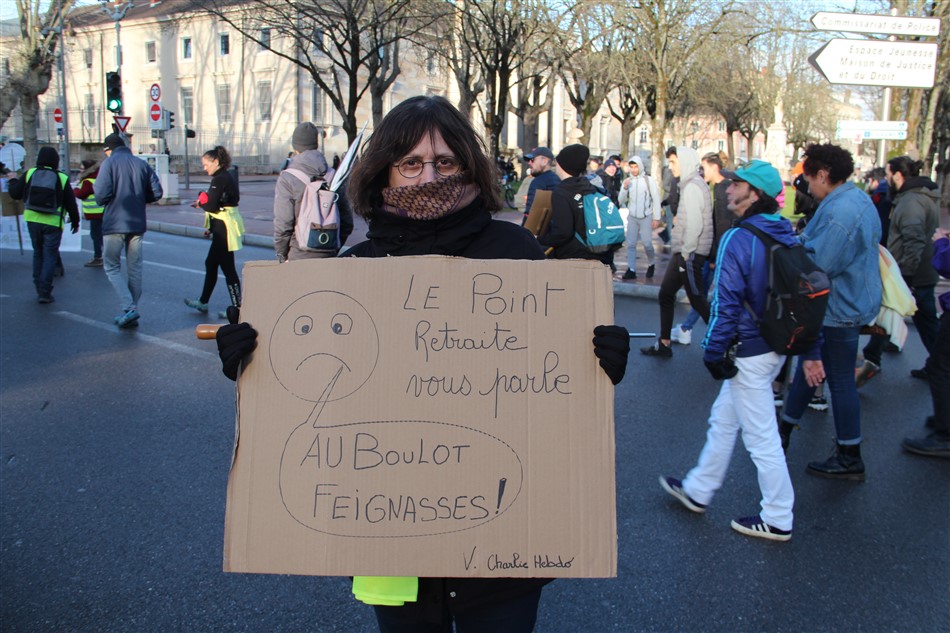 Commissariat de Police
Espace Jeunesse
Maison de Justice
et du Droit
30
Le Point
Retraite
vous parle
AU BOULOT
FEIGNASSES!
V. Charlie Hebdo